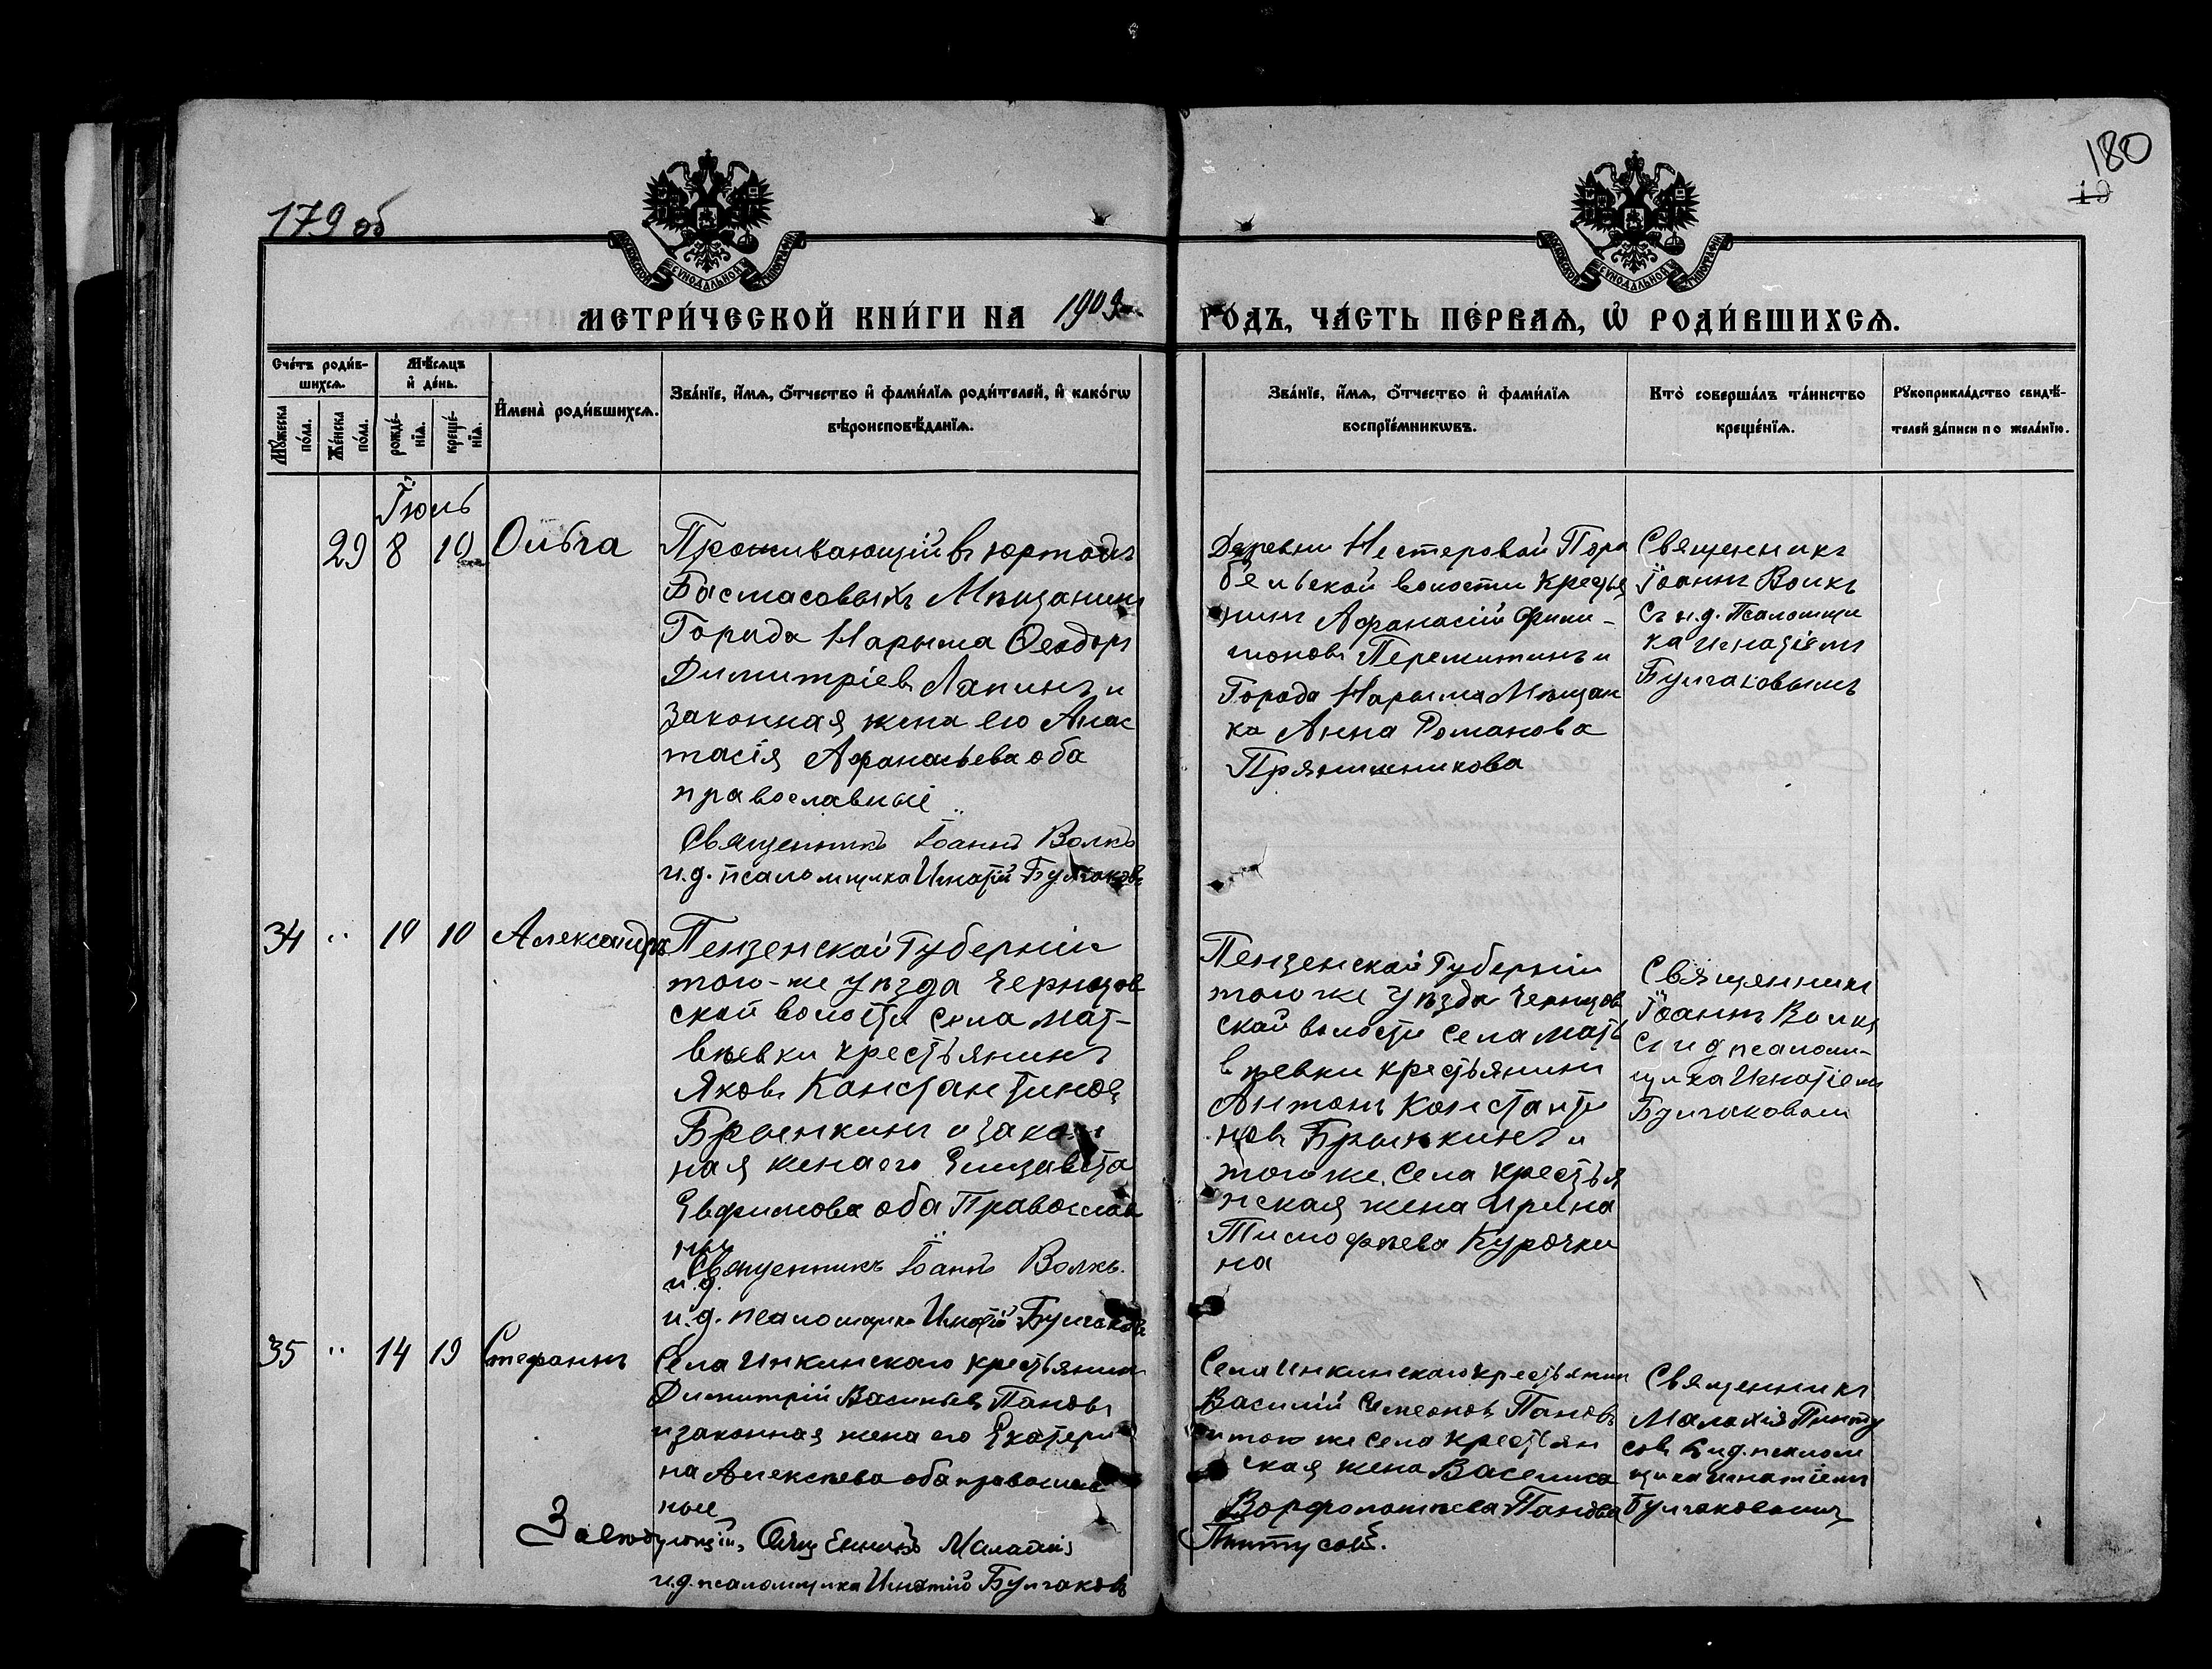 179 об
180
19
МОСКОВСКОЙ СѴНОДАЛЬНОЙ ТИПОГРАФІИ
МОСКОВСКОЙ СѴНОДАЛЬНОЙ ТИПОГРАФІИ
МЕТРИ́ЧЕСКОЙ КНИ́ГИ НА 1909
ГО́ДЪ, ЧА́СТЬ ПЕ́РВАѦ, Ѡ҆ РОДИ́ВШИХСѦ.
Сче́тъ роди́в-
шихсѧ.
Мꙋ́жеска
по́ла.
Же́нска
по́ла.
Мѣ́сѧцъ
и҆ де́нь.
рожде́-
нїѧ.
креще́-
нїѧ.
И҆мена̀ роди́вшихсѧ.
Зва́нїе, и҆́мѧ, ѻ҆́тчество и҆ фами́лїѧ роди́телей, и҆ како́гѡ
вѣроисповѣ́данїѧ.
Зва́нїе, и҆́мѧ, ѻ҆́тчество и҆ фами́лїѧ
воспрїе́мникѡвъ.
Кто̀ соверша́лъ та́инство
креще́нїѧ.
Рꙋкоприкла́дство свидѣ́-
телей за́писи по жела́нїю.
Іюль
29 8 10 Ольга
Проживающій въ юртахъ
Басмасовыхъ Мѣщанинъ
Города Нарыма Ѳеодоръ
Димитріевъ Лапинъ и
законная жена его Анас
тасія Афанасьева оба
православные
Священникъ Іоаннъ Волкъ
и.д. псаломщика Игнатій Булгаковъ
Деревни Нестеровой Пара
бельской волости Крестья
нинъ Афанасій Фили-
моновъ Перемитинъ и
Города Нарыма Мѣщан
ка Анна Романова
Прянишникова
Священникъ
Іоаннъ Волкъ
съ и.д. Псаломщи
ка Игнатіемъ
Булгаковымъ
34 " 10 10 Александръ
Пензенской Губерніи
того-же уѣзда Чернцов
ской волости села Мат-
вѣевки крестьянинъ
Яковъ Константиновъ
Брынкинъ и закон
ная жена его Елизавета
Евфимова оба Православ
ные
и.д.
Священникъ Іоаннъ Волкъ.
и.д. псаломщика Игнатій Булгаковъ
Пензенской Губерніи
того же уѣзда Чернцов
ской волости села Мать
вѣевки крестьянинъ
Антонъ Константи
новъ Брынкинъ и
того же села крестья
нская жена Ирина
Тимофѣева Курочки
на
Священникъ
Іоаннъ Волкъ
съ и д псалом-
щика Игнатіемъ
Булгаковым
35 " 14 19 Стефанъ
Села Инкинскаго крестьянинъ
Димитрій Васильевъ Пановъ
и законная жена его Екатери
на Алексѣева оба православ
ные
Завѣдующій, Священникъ Малахія
Пинтусовъ.
и.д. псаломщика Игнатій Булгаковъ
Села Инкинскаго крестьянин
Василій Симеоновъ Пановъ
и того же села крестьян
ская жена Васелиса
Ворфоломѣева Панова
Священникъ
Малахія Пинту
совъ съ и.д. псалом
щика Игнатіемъ
Булгаковымъ